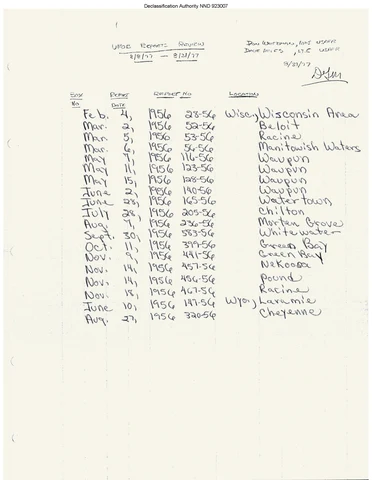 Declassification Authority NND 923007
UFOB REPORTS REVIEW
8/8/77 — 8/22/77
USAFR
USAFR
8/22/77
BOX No. REPORT DATE REPORT NO LOCATION
Feb. 4, 1956 28-56 Wisc, Wisconsin Area
Mar. 2, 1956 52-56 Beloit
Mar. 5, 1956 53-56 Racine
Mar. 6, 1956 54-56 Manitowish Waters
May 7, 1956 116-56 Waupun
May 11, 1956 123-56 Waupun
May 15, 1956 128-56 Waupun
June 2, 1956 140-56 Waupun
June 23, 1956 165-56 Watertown
July 28, 1956 205-56 Chilton
Aug. 7, 1956 236-56 Morten Grove
Sept. 30, 1956 383-56 Whitewater
Oct. 11, 1956 399-56 Green Bay
Nov. 9, 1956 441-56 Green Bay
Nov. 14, 1956 457-56 Nekoosa
Nov. 14, 1956 456-56 Pound
Nov. 18, 1956 467-56 Racine
June 10, 1956 147-56 Wyo, Laramie
Aug. 27, 1956 320-56 Cheyenne